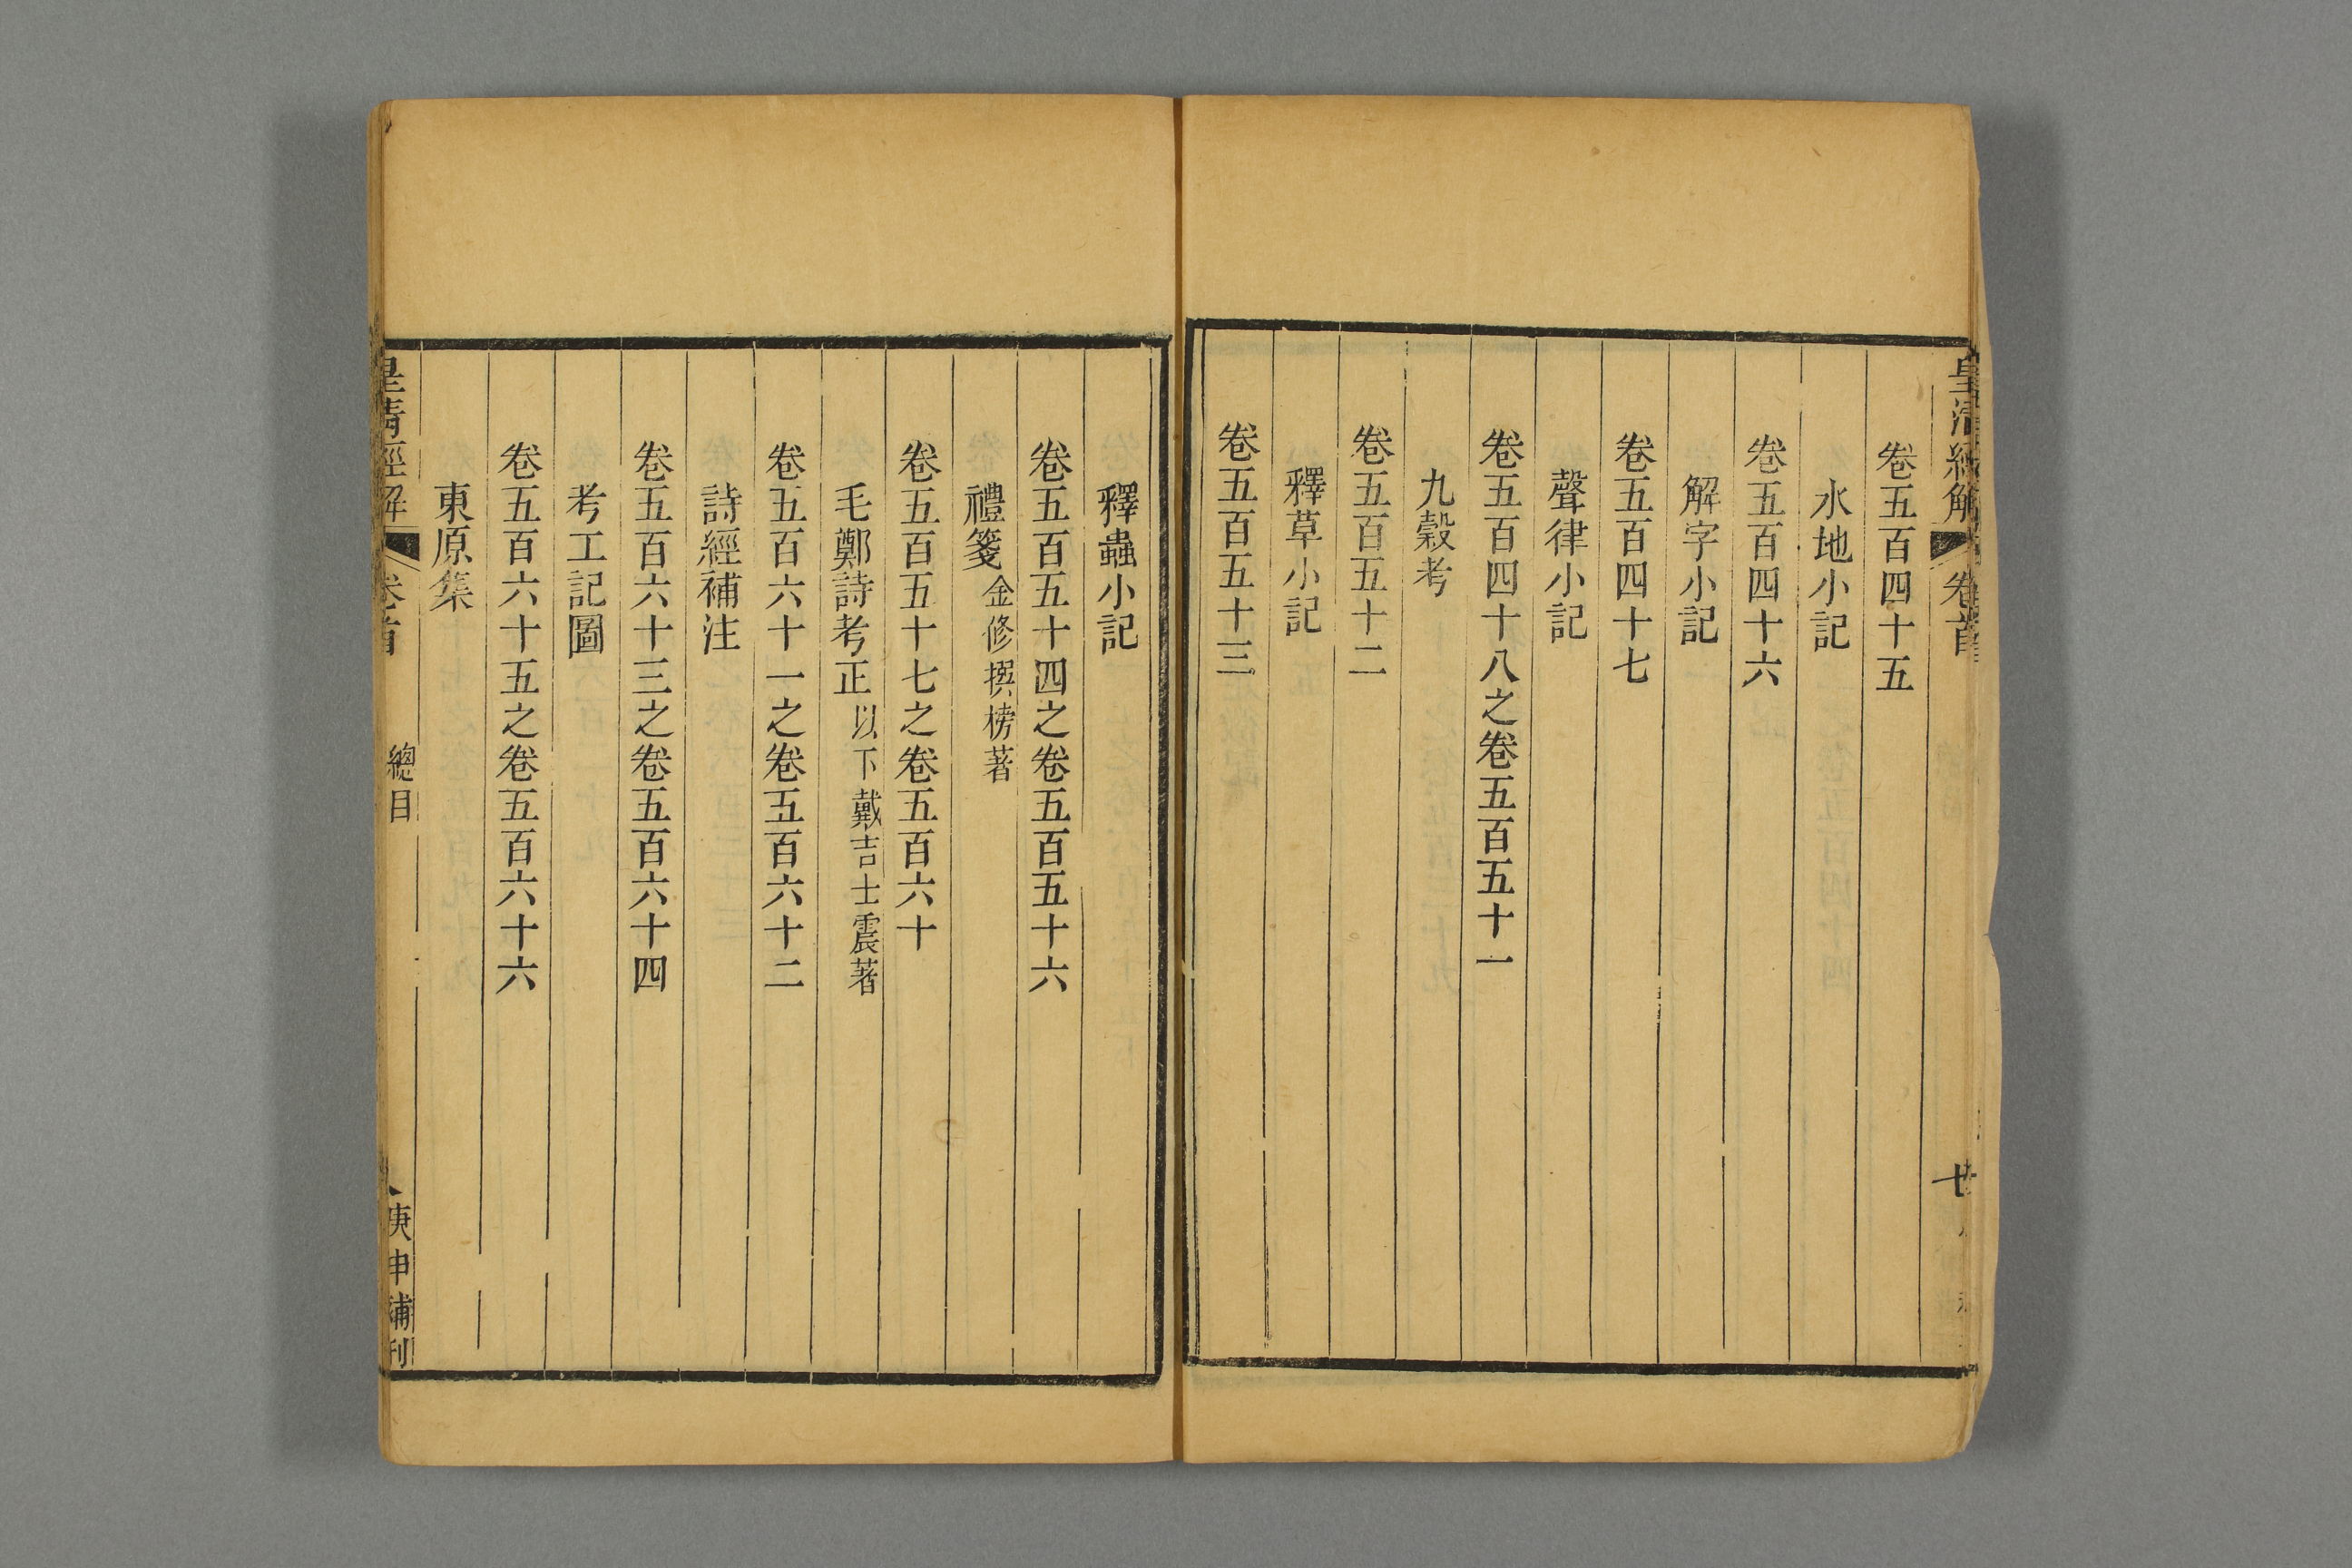 皇清經解 卷首
卷五百四十五
水地小記
卷五百四十六
解字小記
卷五百四十七
聲律小記
卷五百四十八之卷五百五十一
九穀考
卷五百五十二
釋草小記
卷五百五十三
釋蟲小記
卷五百五十四之卷五百五十六
禮箋 金修撰榜著
卷五百五十七之卷五百六十
毛鄭詩考正 以下戴吉士震著
卷五百六十一之卷五百六十二
詩經補注
卷五百六十三之卷五百六十四
考工記圖
卷五百六十五之卷五百六十六
東原集
皇清經解 卷首 總目 庚申補刊